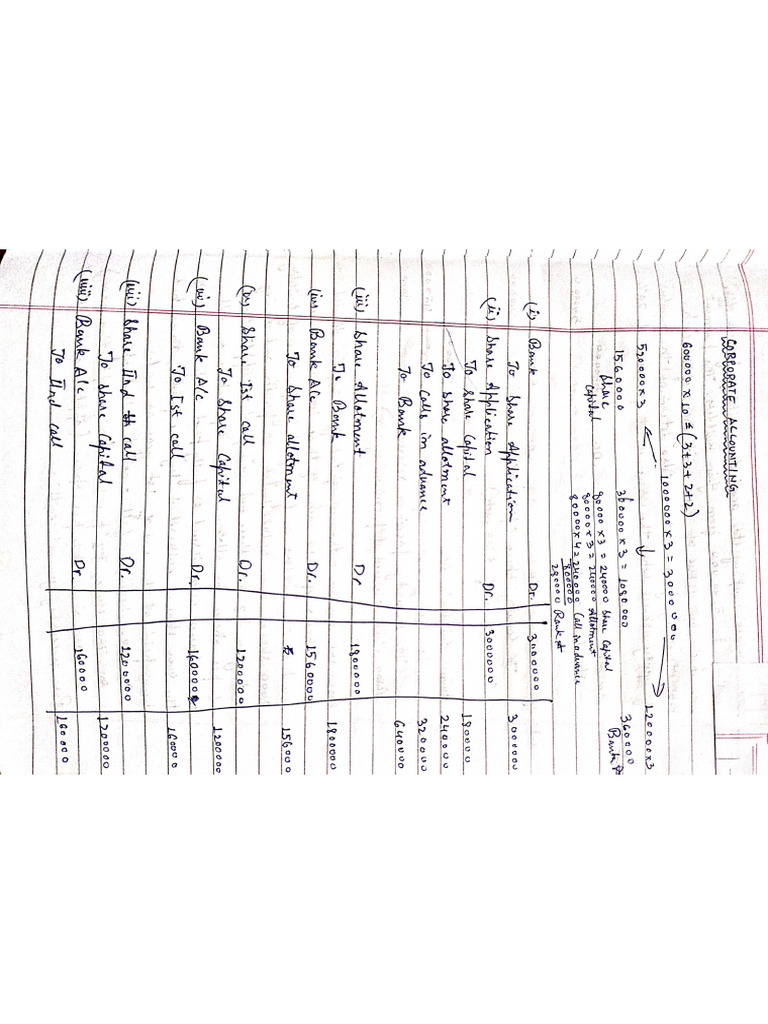 CORPORATE ACCOUNTING
600000 x 10 = (3+3+2+2)
1000000 x 3 = 3000000
520000 x 3
1560000
Share
capital
360000 x 3 = 1080000
80000 x 3 = 240000 Share Capital
80000 x 3 = 240000 Allotment
80000 x 4 = 240000 Call in advance
800000
280000 Bank
120000 x 3
360000
Bank
(i) Bank Dr. 3000000
To Share Application 3000000
(ii) Share Application Dr. 3000000
To Share Capital 1800000
To Share allotment 240000
To Calls in advance 320000
To Bank 640000
(iii) Share Allotment Dr 1800000
To Bank 1800000
(iv) Bank A/c Dr. 1560000
To Share allotment 156000
(v) Share Ist call Dr. 1200000
To Share Capital 1200000
(vi) Bank A/c Dr. 160000
To Ist call 160000
(vii) Share IInd call Dr. 1200000
To Share Capital 1200000
(viii) Bank A/c Dr. 160000
To IInd call 160000